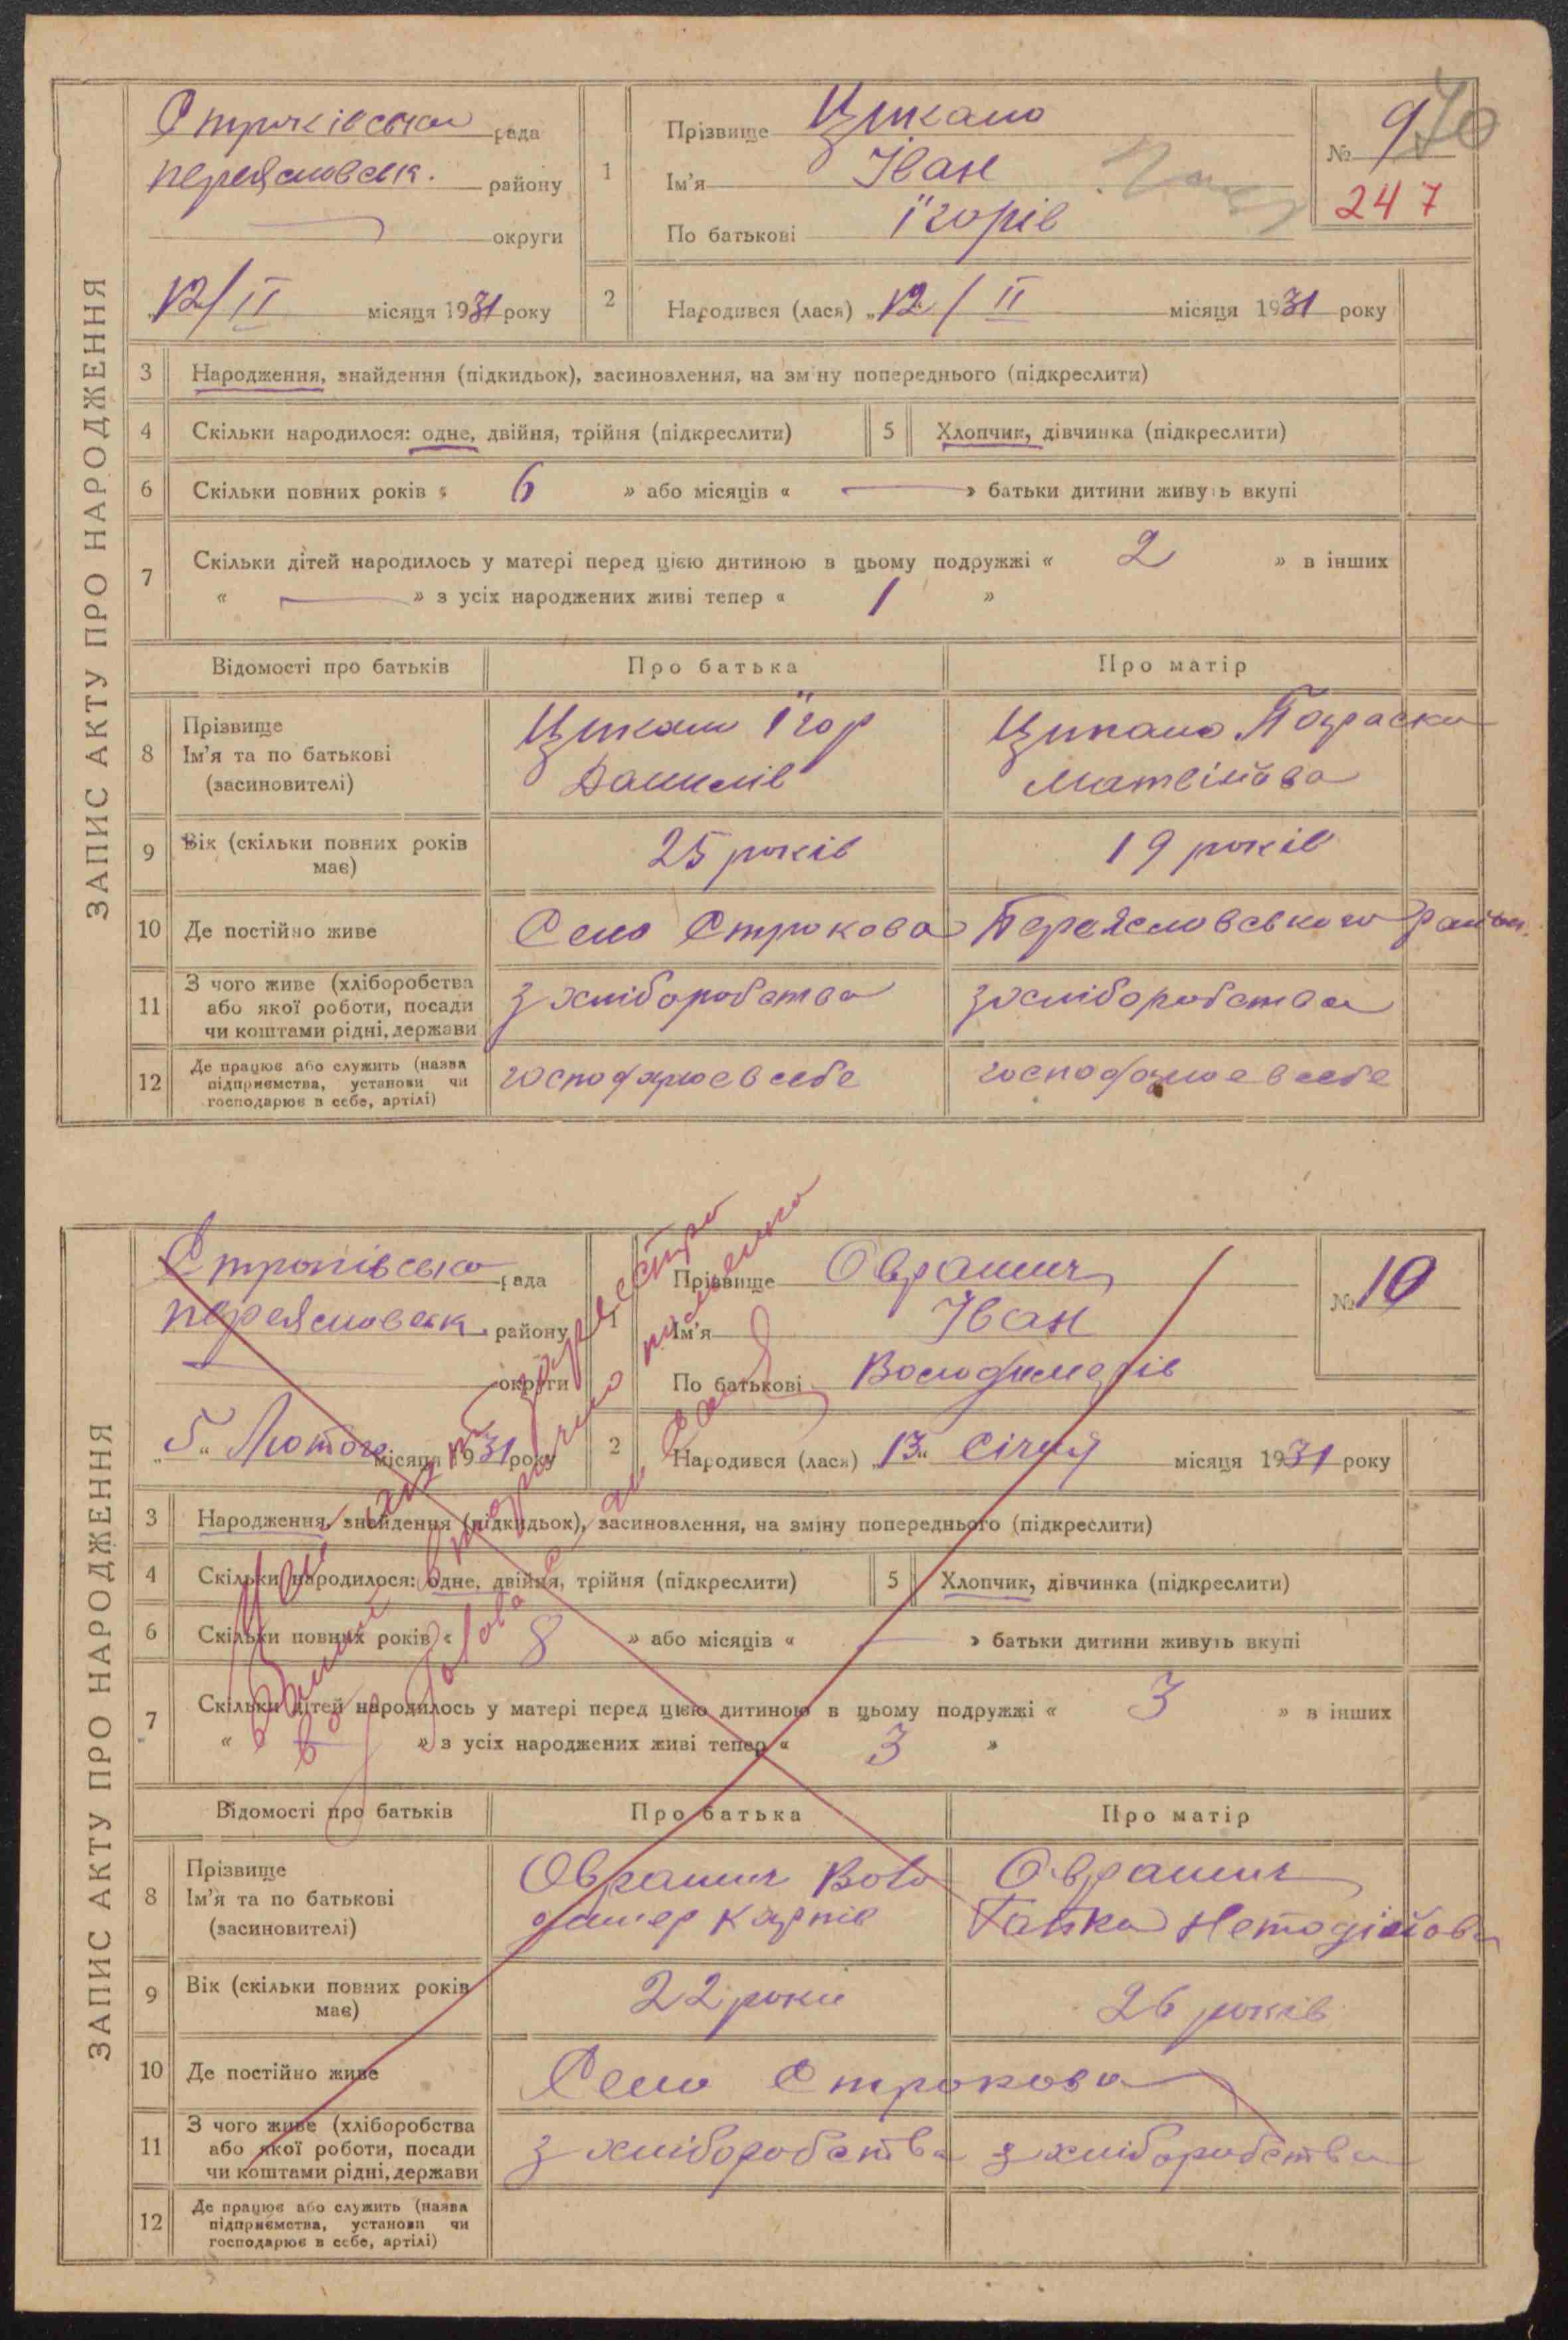 ЗАПИС АКТУ ПРО НАРОДЖЕННЯ
Строківська рада
переяславськ. району
округи
12/II місяця 1931 року
1
Прізвище
Ім'я Іван
По батькові Ігорів
№ 9
70
247
2 Народився (лася) „12/II місяця 1931 року
3 Народження, знайдення (підкидьок), засиновлення, на зміну попереднього (підкреслити)
4 Скільки народилося: одне, двійня, трійня (підкреслити) 5 Хлопчик, дівчинка (підкреслити)
6 Скільки повних років « 6 » або місяців « — » батьки дитини живуть вкупі
7 Скільки дітей народилось у матері перед цією дитиною в цьому подружжі « 2 » в інших
« — » з усіх народжених живі тепер « 1 »
Відомості про батьків Про батька Про матір
8 Прізвище
Ім'я та по батькові
(засиновителі)
Ігор
Данилів
Параска
Матвійова
9 Вік (скільки повних років
має)
25 років 19 років
10 Де постійно живе Село Строкова Переяславського район.
11 З чого живе (хліборобства
або якої роботи, посади
чи коштами рідні, держави
з хліборобства з хліборобства
12 Де працює або служить (назва
підприємства, установи чи
господарює в себе, артілі)
господарює в себе господарює в себе
ЗАПИС АКТУ ПРО НАРОДЖЕННЯ
Строківська рада
переяславськ. району
округи
„5“ Лютого місяця 1931 року
1
Прізвище Оврашич
Ім'я Іван
По батькові Володимерів
№ 10
2 Народився (лася) „13“ Січня місяця 1931 року
3 Народження, знайдення (підкидьок), засиновлення, на зміну попереднього (підкреслити)
4 Скільки народилося: одне, двійня, трійня (підкреслити) 5 Хлопчик, дівчинка (підкреслити)
6 Скільки повних років « 8 » або місяців « — » батьки дитини живуть вкупі
7 Скільки дітей народилось у матері перед цією дитиною в цьому подружжі « 3 » в інших
« — » з усіх народжених живі тепер « 3 »
Відомості про батьків Про батька Про матір
8 Прізвище
Ім'я та по батькові
(засиновителі)
Оврашич Воло
димер Карпів
Оврашич
Гапка
9 Вік (скільки повних років
має)
22 роки 26 років
10 Де постійно живе Село Строкова
11 З чого живе (хліборобства
або якої роботи, посади
чи коштами рідні, держави
з хліборобства з хліборобства
12 Де працює або служить (назва
підприємства, установи чи
господарює в себе, артілі)